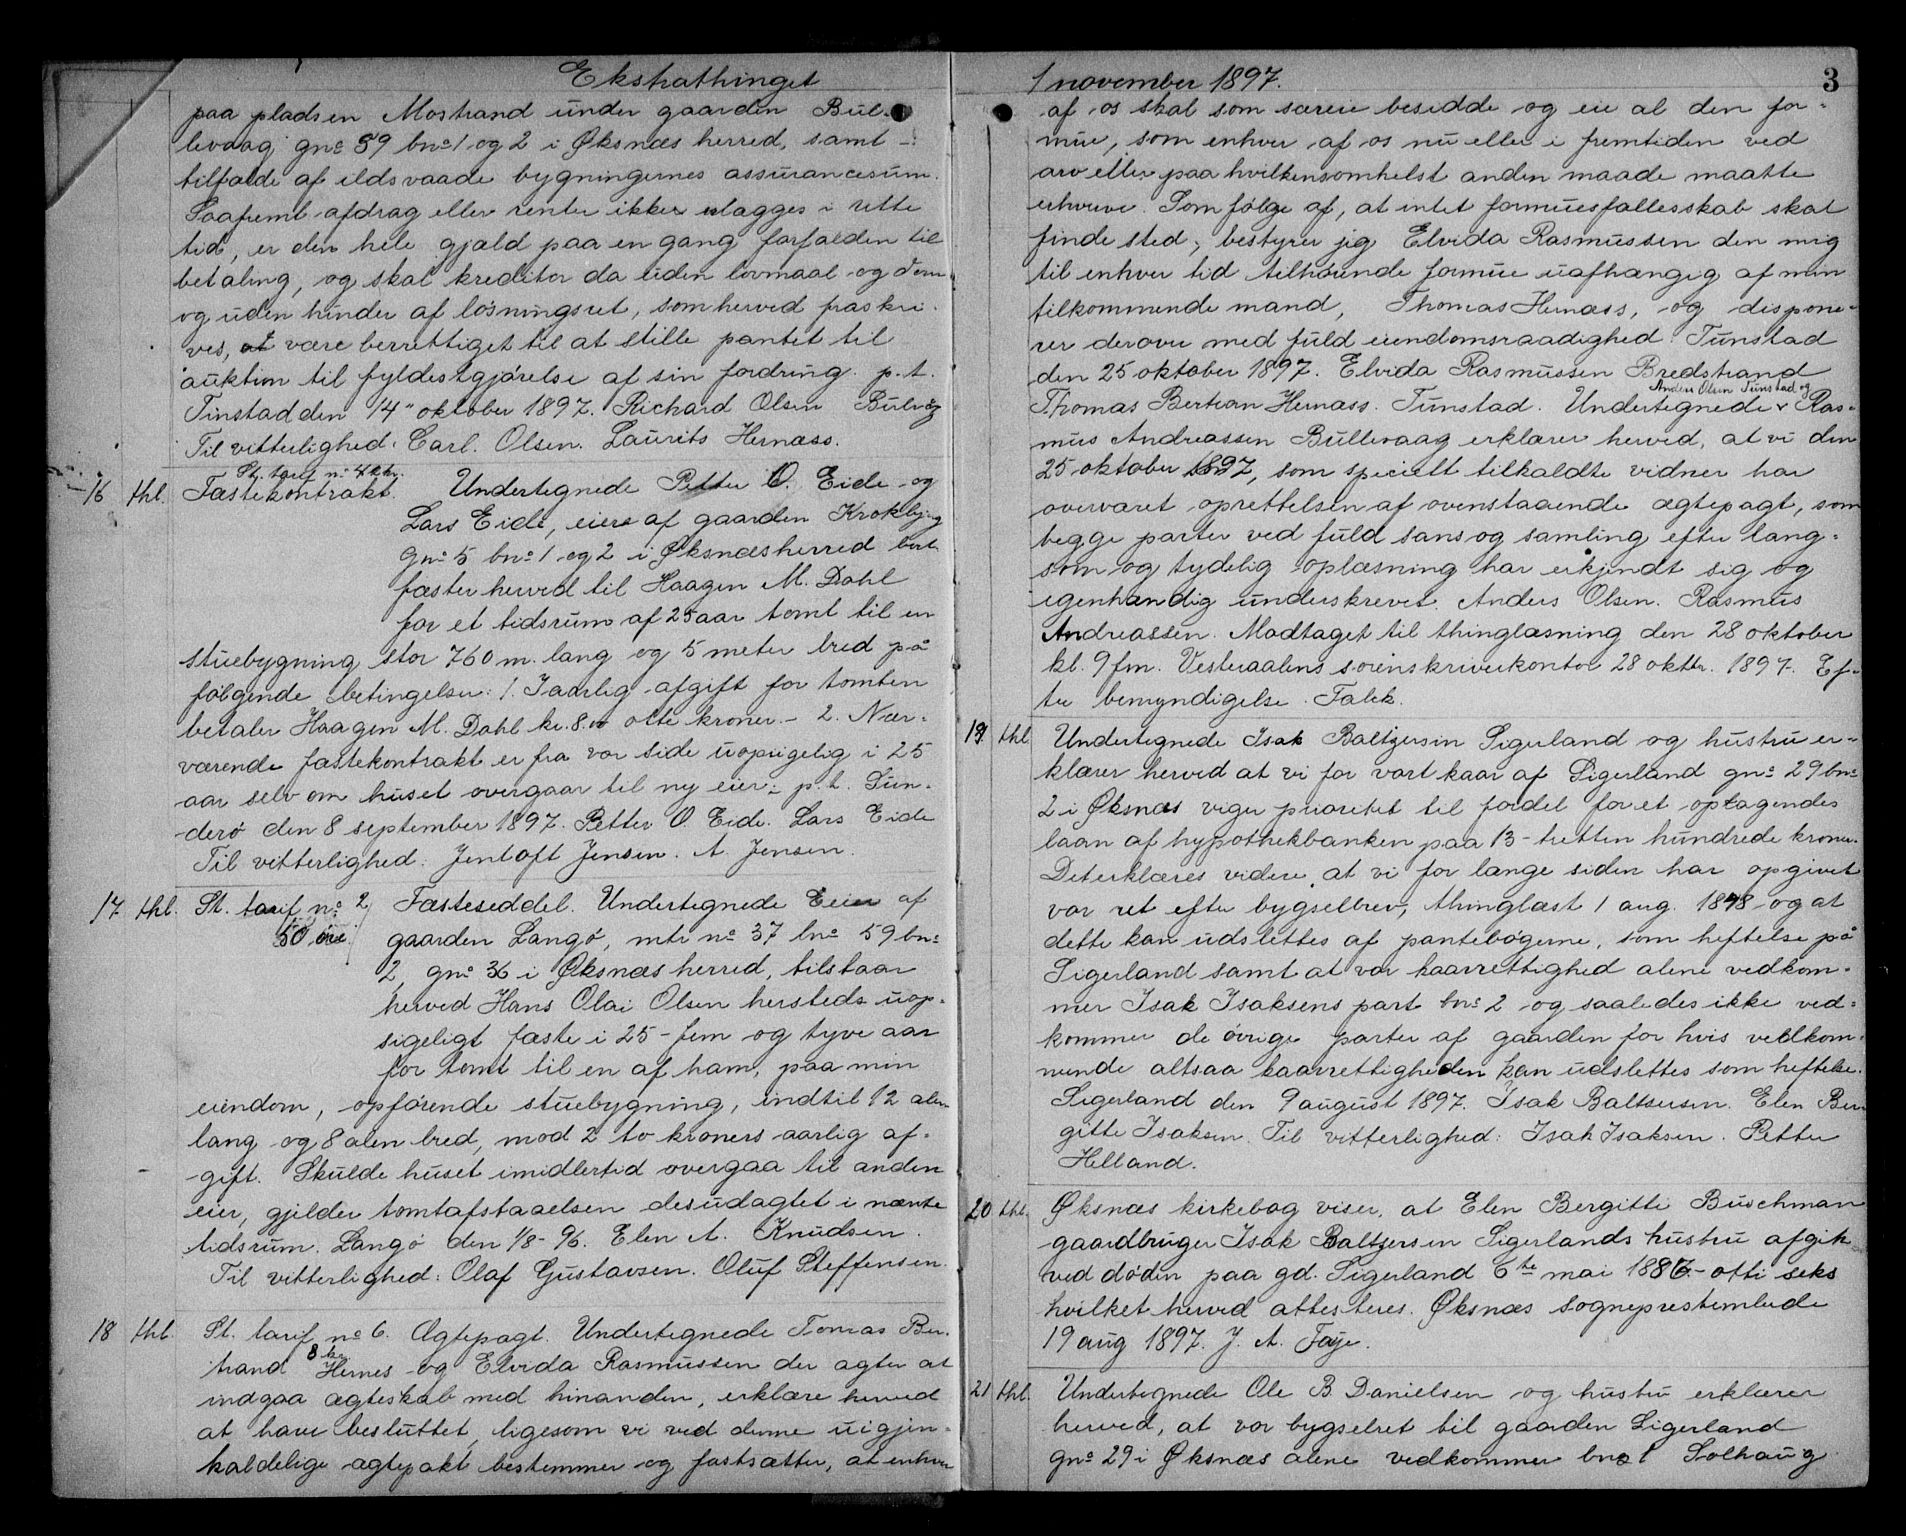 Ekstrathinget
paa pladsen Mostrand under gaarden Bul-
levaag gno 59 bno 1 og 2 i Øksnæs herred, samt -
tilfælde af ildsvaade bygningernes assurancesum.
Saafremt afdrag eller renter ikke erlægges i rette
tid, er den hele gjæld paa en gang forfalden til
betaling, og skal kreditor da uden lovmaal og dom
og uden hinder af løsningsret, som herved fraskri-
ves, være berettiget til at stille pantet til
auktion til fyldestgjørelse af sin fordring. p.t.
Tinstad den 14" oktober 1897. Richard Olsen Bulvåg
Til vitterlighed. Carl. Olsen. Laurits Hernæss.
St. tarif no 4 kr.
16 thl. Fæstekontrakt. Undertegnede Petter O. Eide og
Lars Eide, eiere af gaarden Krokbjerg
gno 5 bno 1 og 2 i Øksnæs herred bort
fæster herved til Haagen M. Dahl
for et tidsrum af 25 aar tomt til en
stuebygning stor 760 m. lang og 5 meter bred på
følgende betingelser: 1. I aarlig afgift for tomten
betaler Haagen M. Dahl kr. 8.00 otte kroner. - 2. Nær-
værende fæstekontrakt er fra vor side uopsigelig i 25
aar selv om huset overgaar til ny eier. p.t. Tun-
derø den 8 september 1897. Petter O. Eide. Lars Eide
Til vitterlighed: Jentoft Jensen. A. Jensen.
17 thl. St. tarif no 2 Fæsteseddel. Undertegnede Eier af
50 øre. gaarden Langø, mtr no 37 lno 59 bno
2, gno 36 i Øksnæs herred, tilstaar
herved Hans Olai Olsen hersteds uop-
sigeligt fæste i 25 - fem og tyve aar
for tomt til en af ham, paa min
eiendom, opførende stuebygning, indtil 12 alen
lang og 8 alen bred, mod 2 to kroners aarlig af-
gift. Skulde huset imidlertid overgaa til anden
eier, gjelder tomtafstaaelsen desudagtet i nævnte
tidsrum. Langø den 1/8-96. Elen A. Knudsen.
Til vitterlighed: Olaf Gustavsen. Oluf Steffensen.
18 thl. St. tarif no 6. Ægtepagt. Undertegnede Tomas Ber-
8 kr
trand Hernes og Elvida Rasmussen der agter at
indgaa ægteskab med hinanden, erklære herved
at have besluttet, ligesom vi ved denne uigjen-
kaldelige ægtepakt bestemmer og fastsætter, at enhver
1 november 1897. 3
af os skal som særeie besidde og eie al den for-
mue, som enhver af os nu eller i fremtiden ved
arv eller paa hvilkensomhelst anden maade maatte
erhverve. Som følge af, at intet formuesfællesskab skal
finde sted, bestyrer jeg Elvida Rasmussen den mig
til enhver tid tilhørende formue uafhængig af min
tilkommende mand, Thomas Hernæss, og dispone-
rer derover med fuld eiendomsraadighed. Tunstad
den 25 oktober 1897. Elvida Rasmussen Bredstrand
Anders Olsen Tunstad og
Thomas Bertran Hernæss. Tunstad. Undertegnede v Ras-
mus Andreassen Bullevaag erklærer herved, at vi den
25 oktober 1897, som specielt tilkaldte vidner har
overværet oprettelsen af ovenstaaende ægtepagt, som
begge parter ved fuld sans og samling efter lang-
som og tydelig oplæsning har erkjendt sig og
egenhændig underskrevet. Anders Olsen. Rasmus
Andreassen. Modtaget til thinglæsning den 28 oktober
kl. 9 fm. Vesteraalens sorenskriverkontor 28 oktbr. 1897. Ef-
ter bemyndigelse. Falck.
19 thl Undertegnede Isak Baltzersen Sigerland og hustru er-
klærer herved at vi for vort kaar af Sigerland gno 29 bno
2 i Øksnæs viger prioretet til fordel for et optagendes
laan af hypothekbanken paa 13 - tretten hundrede kroner.
Det erklæres videre at vi for længe siden har opgivet
vor ret efter bygselbrev, thinglæst 1 aug. 1848 og at
dette kan udslettes af pantebøgerne, som heftelse på
Sigerland samt at vor kaarrettighed alene vedkom-
mer Isak Isaksens part bno 2 og saaledes ikke ved-
kommer de øvrige parter af gaarden for hvis vedkom-
mende altsaa kaarrettigheden kan udslettes som heftelse.
Sigerland den 9 august 1897. Isak Baltsersen. Elen Ber-
gitte Isaksen. Til vitterlighed: Isak Isaksen. Petter
Helland.
20 thl. Øksnæs kirkebog viser, at Elen Bergitte Buschman
gaardbruger Isak Baltzersen Sigerlands hustru afgik
ved døden paa gd. Sigerland 6te mai 1886 - otti seks
hvilket herved attesteres. Øksnæs sogneprestembede
19 aug 1897. J. A. Faye.
21 thl. Undertegnede Ole B. Danielsen og hustru erklærer
herved, at vor bygselret til gaarden Sigerland
gno 29 i Øksnæs alene vedkommer bno 1 Solhaug